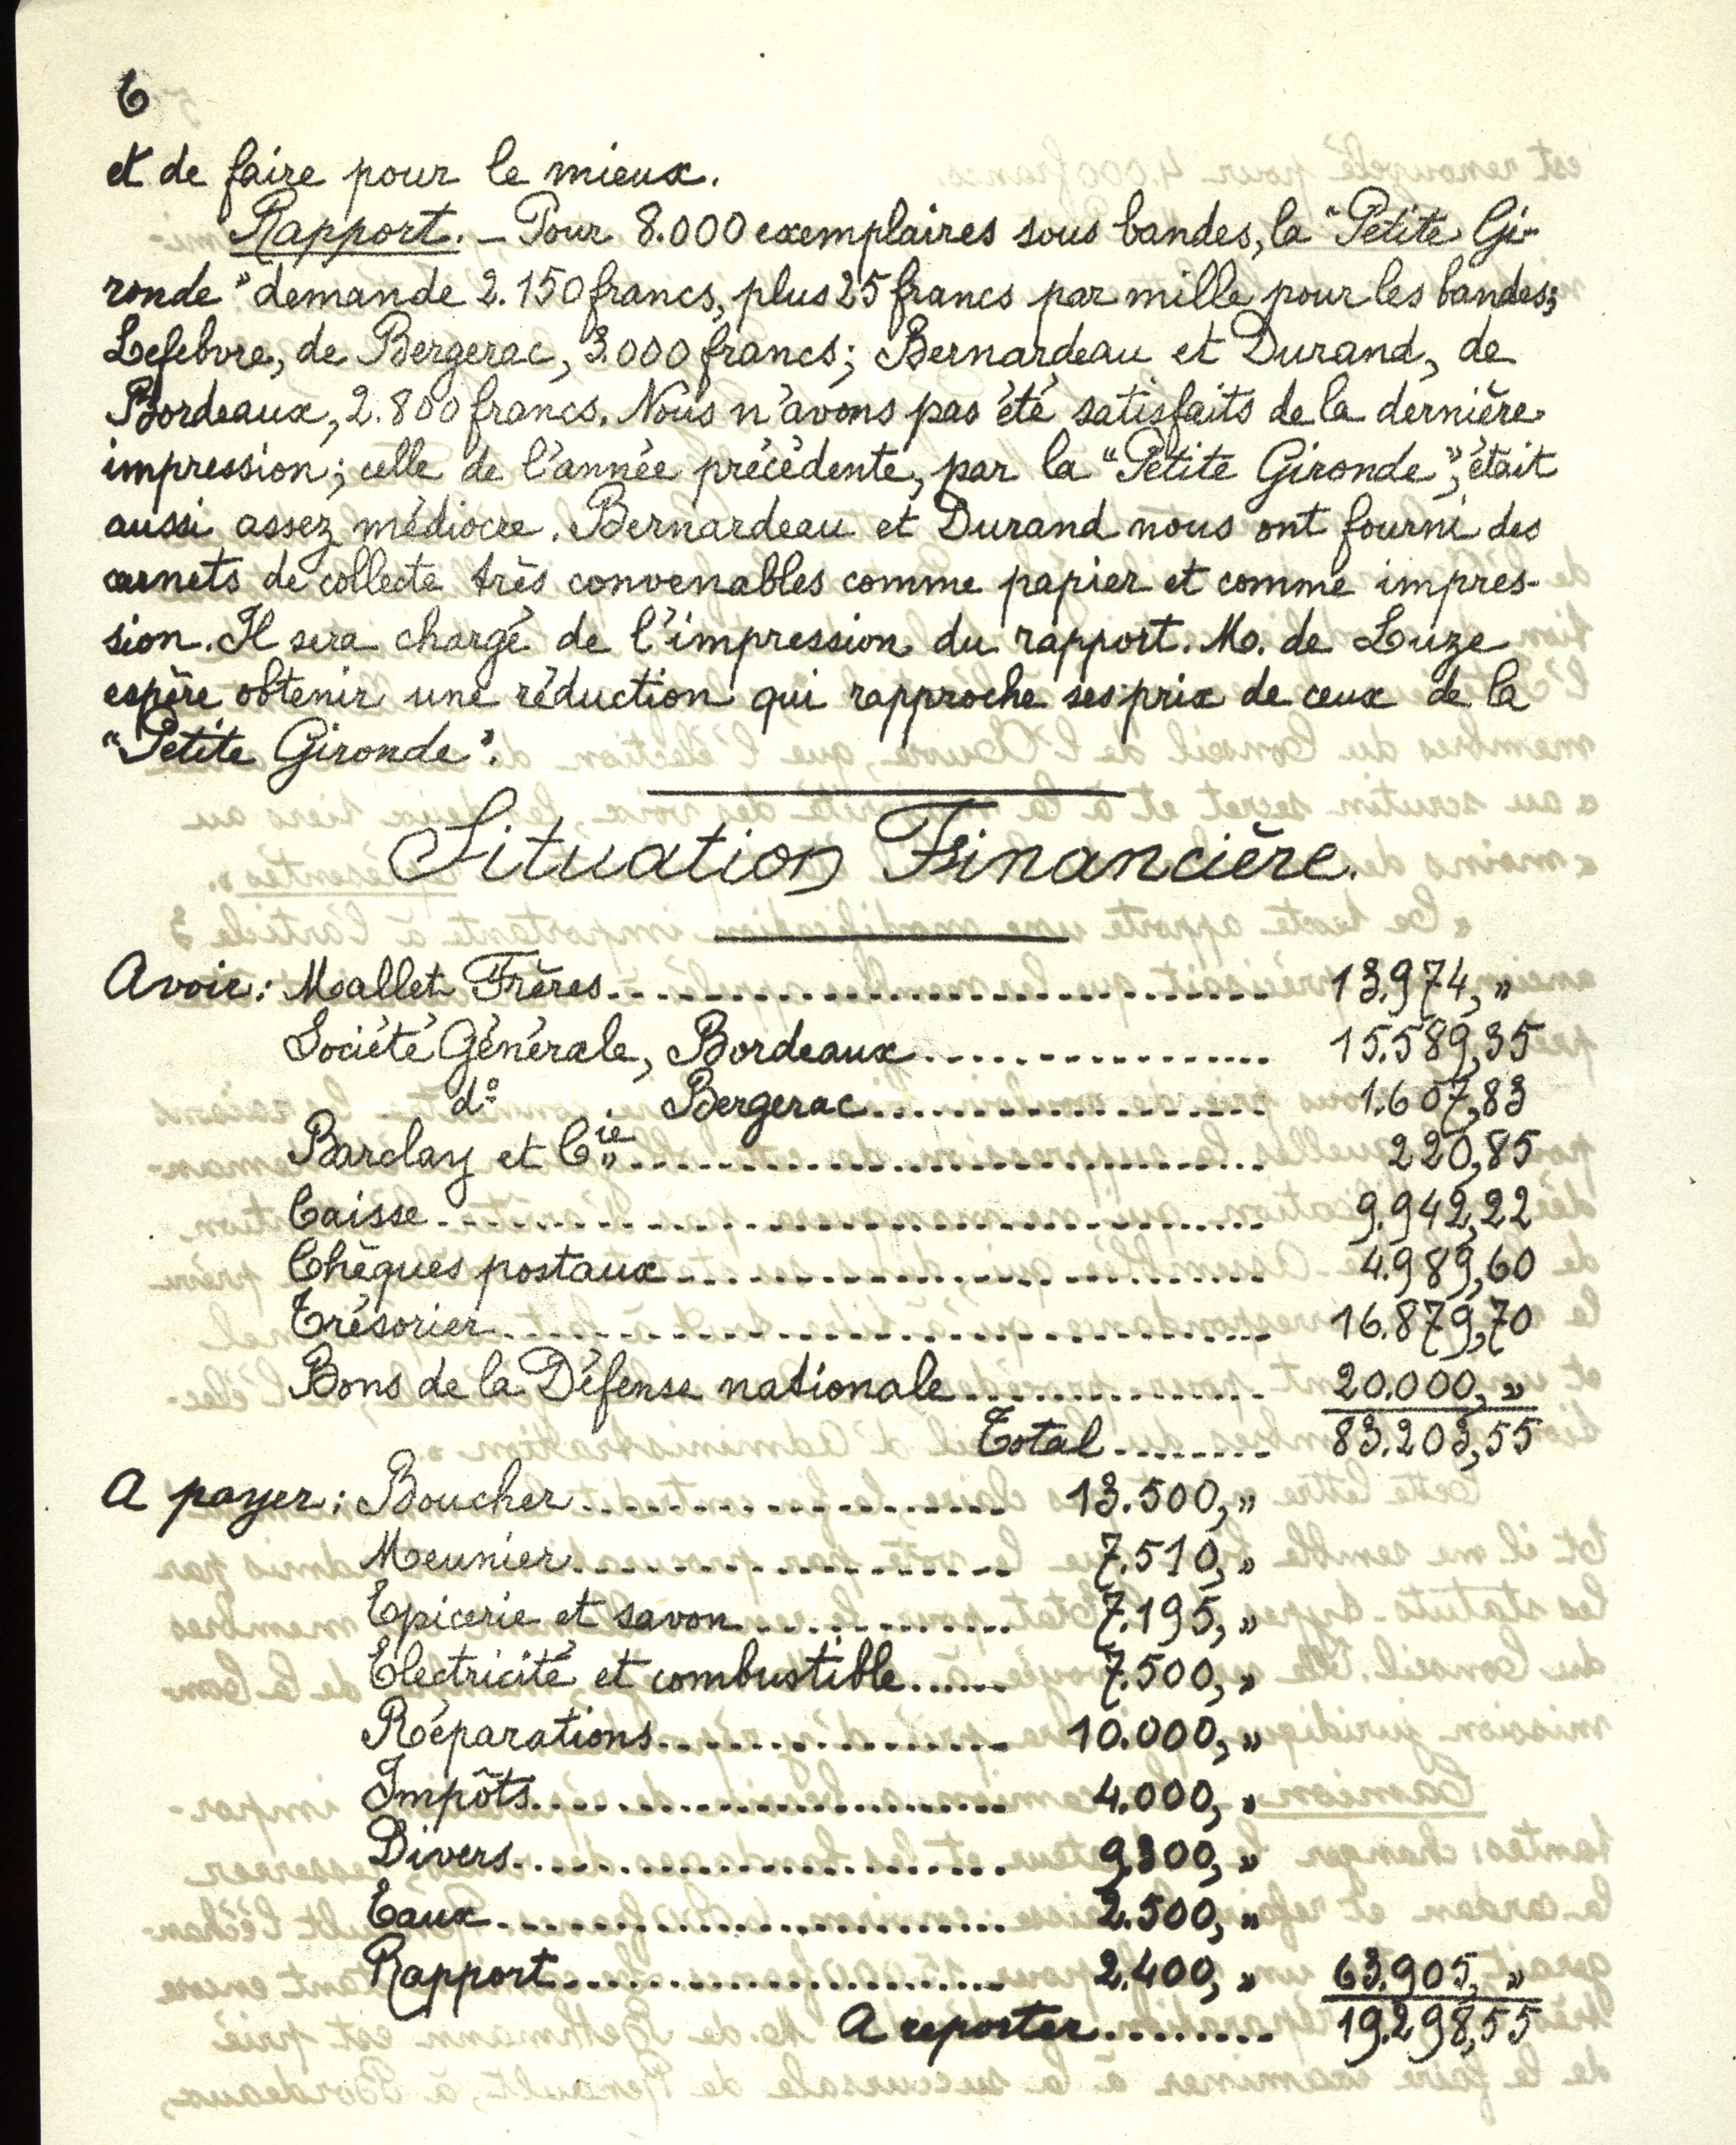 6
et de faire pour le mieux.
Rapport. – Pour 8.000 exemplaires sous bandes, la "Petite Gi-
ronde" demande 2.150 francs, plus 25 francs par mille pour les bandes;
Lefebvre, de Bergerac, 3.000 francs; Bernardeau et Durand, de
Bordeaux, 2.800 francs. Nous n'avons pas été satisfaits de la dernière
impression; celle de l'année précédente, par la "Petite Gironde", était
aussi assez médiocre. Bernardeau et Durand nous ont fourni des
carnets de collecte très convenables comme papier et comme impres-
sion. Il sera chargé de l'impression du rapport. M. de Luze
espère obtenir une réduction qui rapproche ses prix de ceux de la
"Petite Gironde".
Situation Financière.
Avoir: Mallet Frères 13.974,"
Société Générale, Bordeaux 15.589,35
d° Bergerac 1.607,83
Barclay et Cie 220,85
Caisse 9.942,22
Chèques postaux 4.989,60
Trésorier 16.879,70
Bons de la Défense nationale 20.000,"
Total 83.203,55
A payer: Boucher 13.500,"
Meunier 7.510,"
Epicerie et savon 7.195,"
Electricité et combustible 7.500,"
Réparations 10.000,"
Impôts 4.000,"
Divers 9.300,"
Eaux 2.500,"
Rapport 2.400," 63.905,"
A reporter 19.298,55